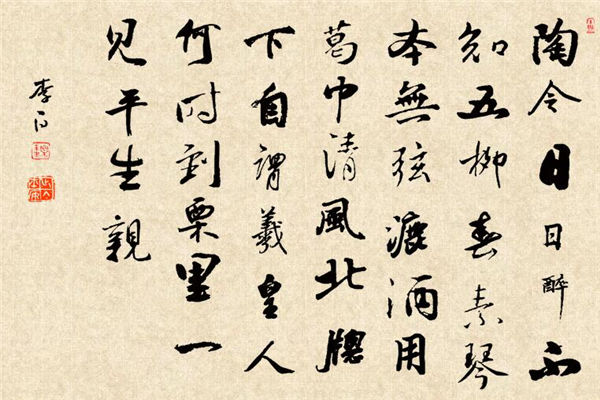 陶令日日醉不
知五柳春素琴
本無弦漉酒用
葛巾清風北牕
下自謂羲皇人
何時到栗里一
見平生親
李白